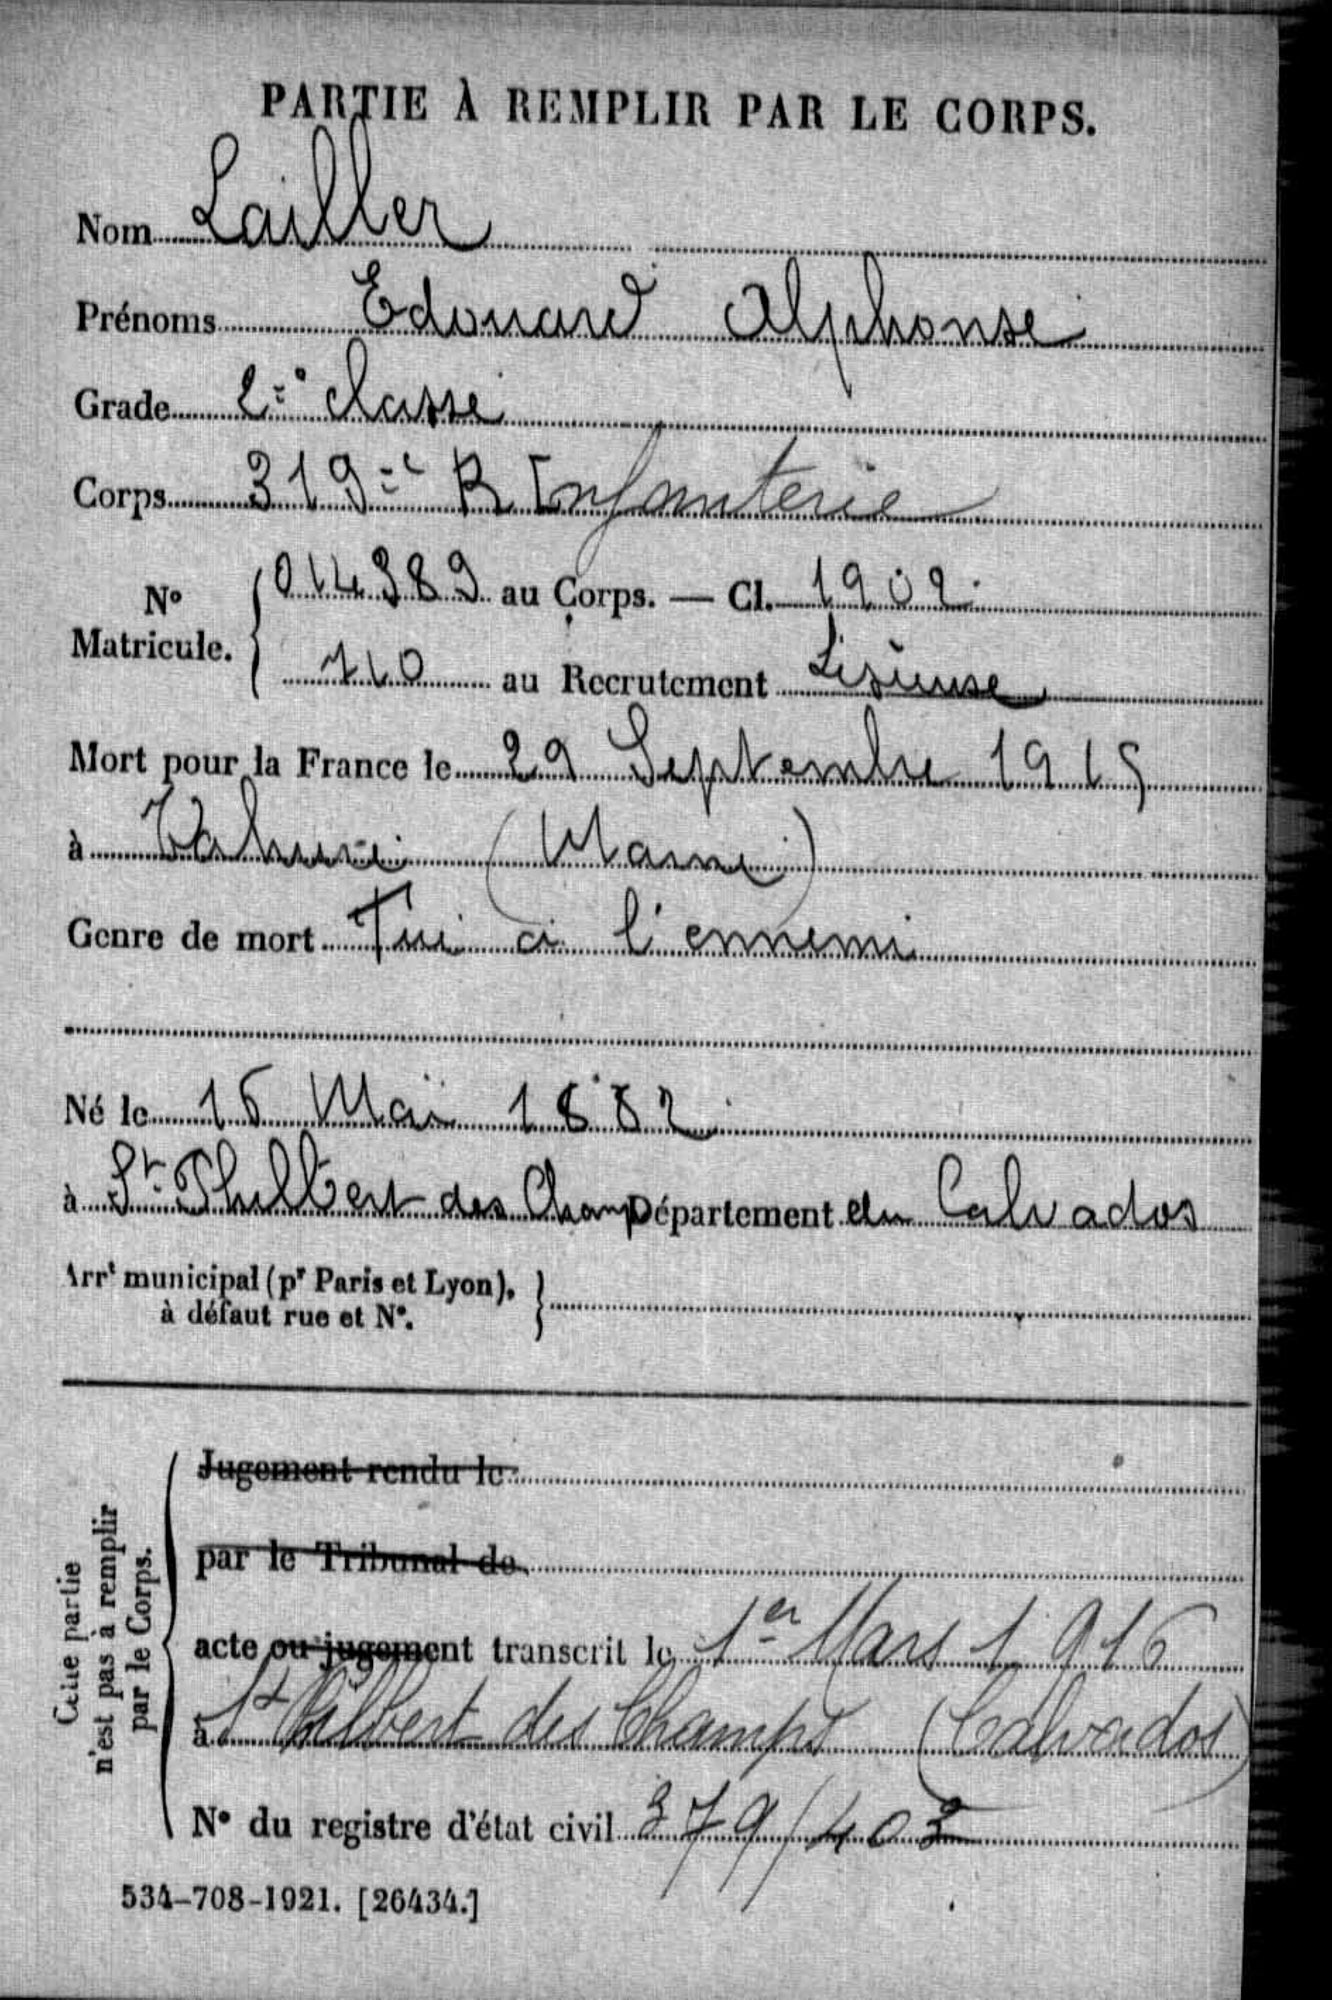 PARTIE À REMPLIR PAR LE CORPS.
Nom Lailler
Prénoms Edouard Alphonse
Grade 2e classe
Corps 319e R Infanterie
No Matricule. { 014389 au Corps. — Cl. 1902
710 au Recrutement Lisieuse
Mort pour la France le 29 Septembre 1915
à Tahure (Marne)
Genre de mort Tué à l'ennemi
Né le 16 Mai 1882
à St Philbert des Champ Département du Calvados
Arrt municipal (pr Paris et Lyon), }
à défaut rue et No.
Cette partie
n'est pas à remplir
par le Corps.
Jugement rendu le
par le Tribunal de
acte ou jugement transcrit le 1er Mars 1916
à St Philbert des Champs (Calvados)
No du registre d'état civil 379/402
534-708-1921. [26434.]